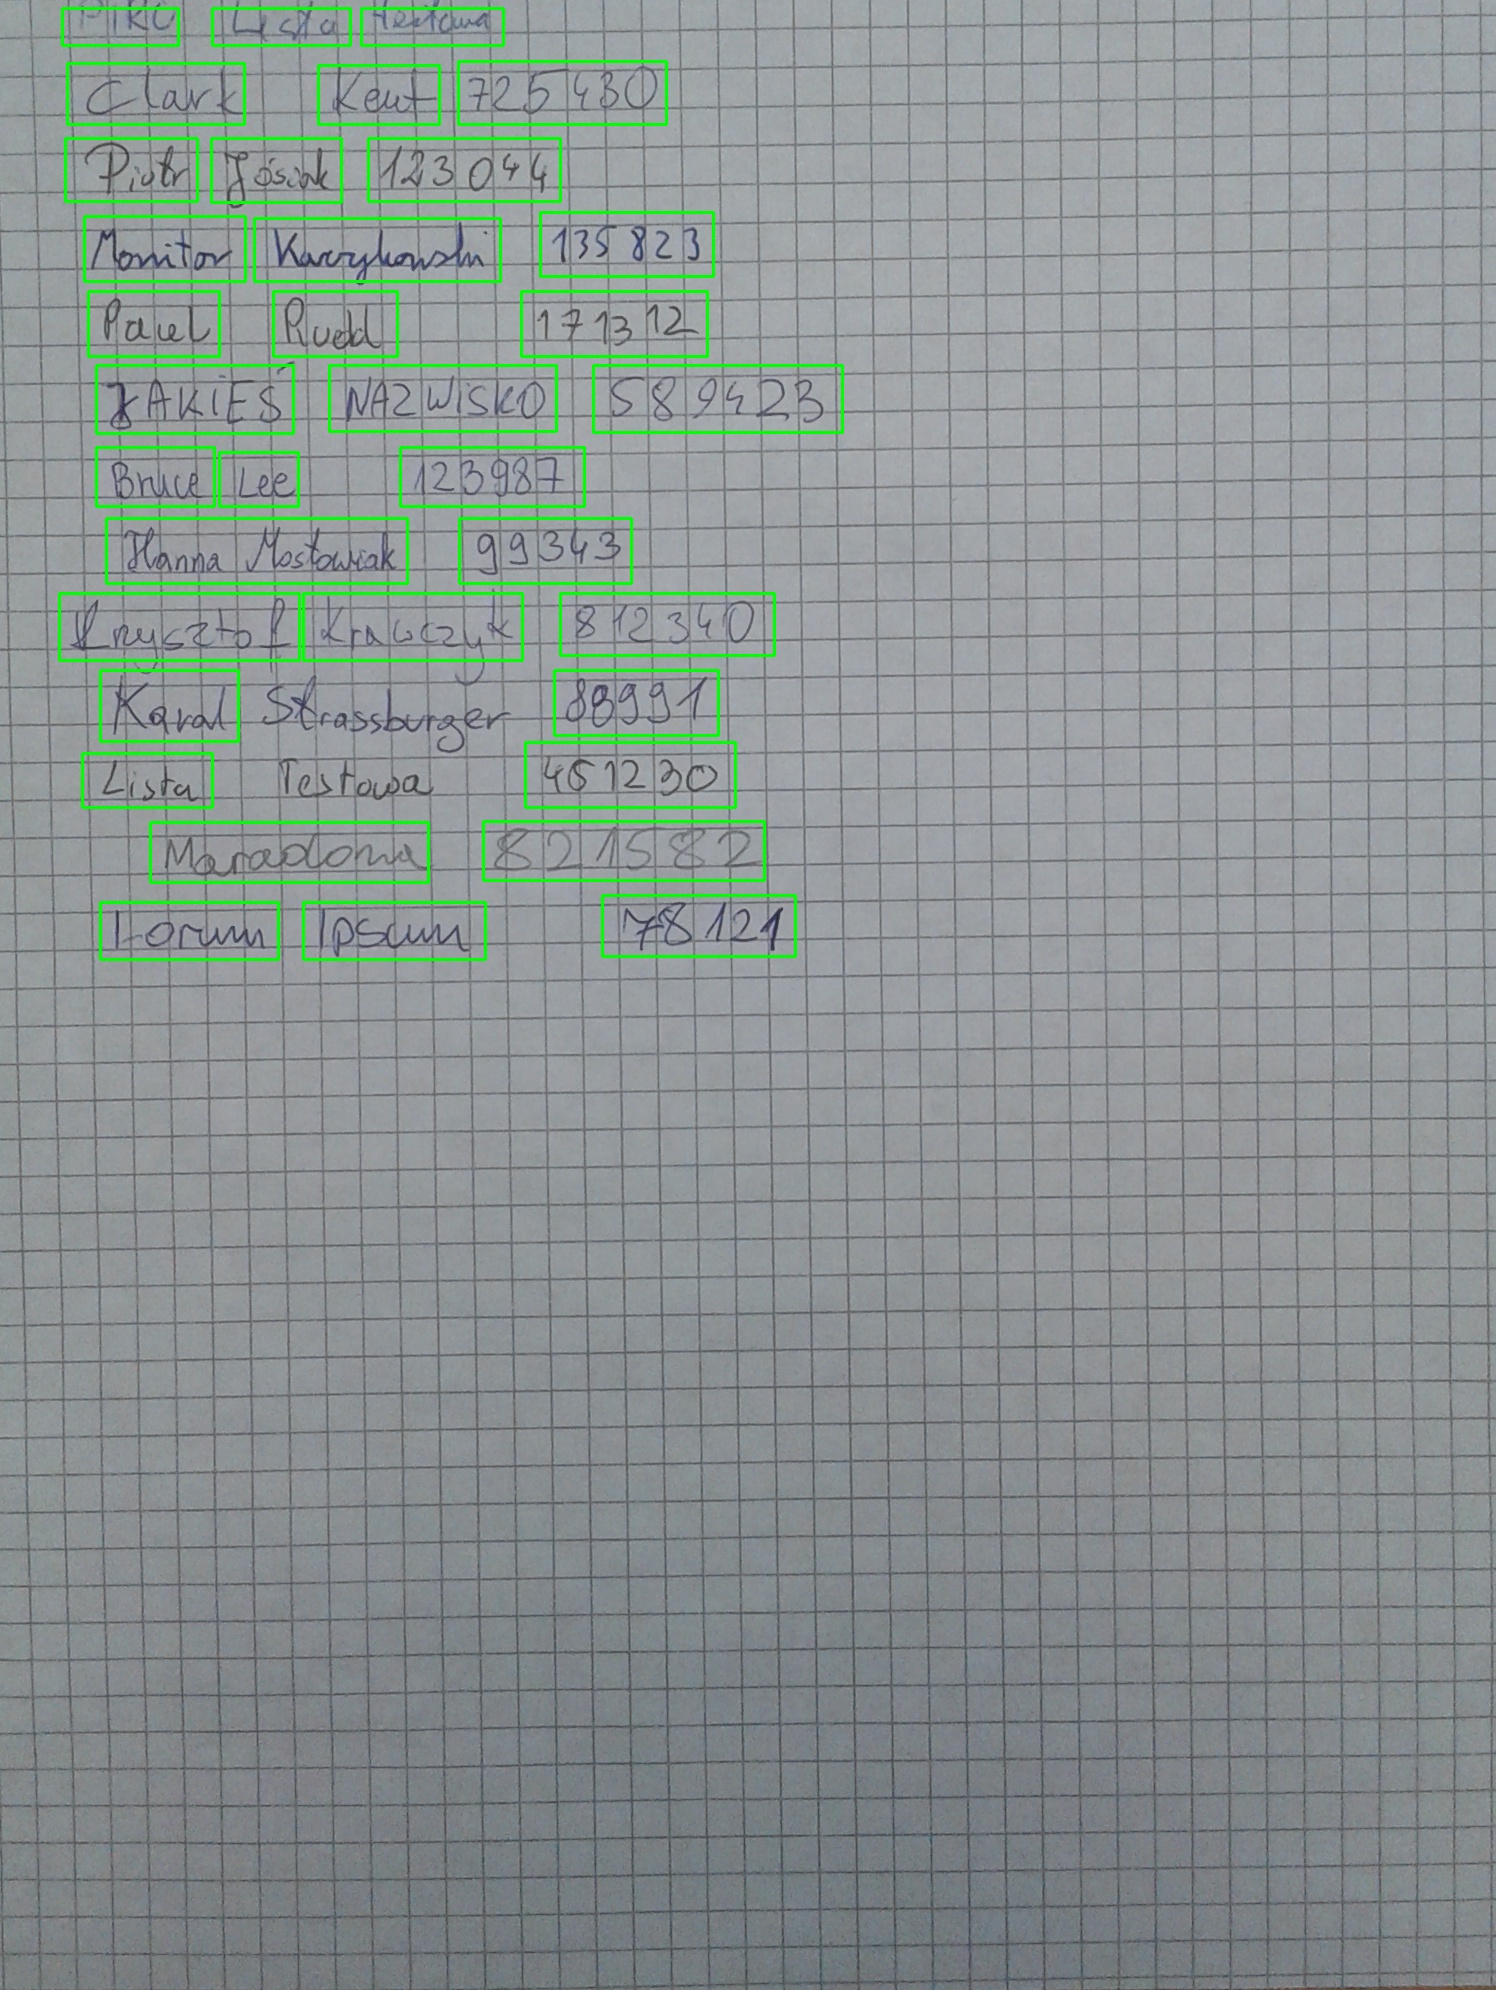 Lista testowa
Clark Kent 725430
Piotr Jósiak 123044
Monitor 135823
Paweł Rudd 171312
JAKIEŚ NAZWISKO 589423
Bruce Lee 123987
Hanna Mostowiak 99343
Krzysztof Krawczyk 812340
Karol Strassburger 88991
Lista Testowa 451230
Maradona 821582
Lorum Ipsum 78121